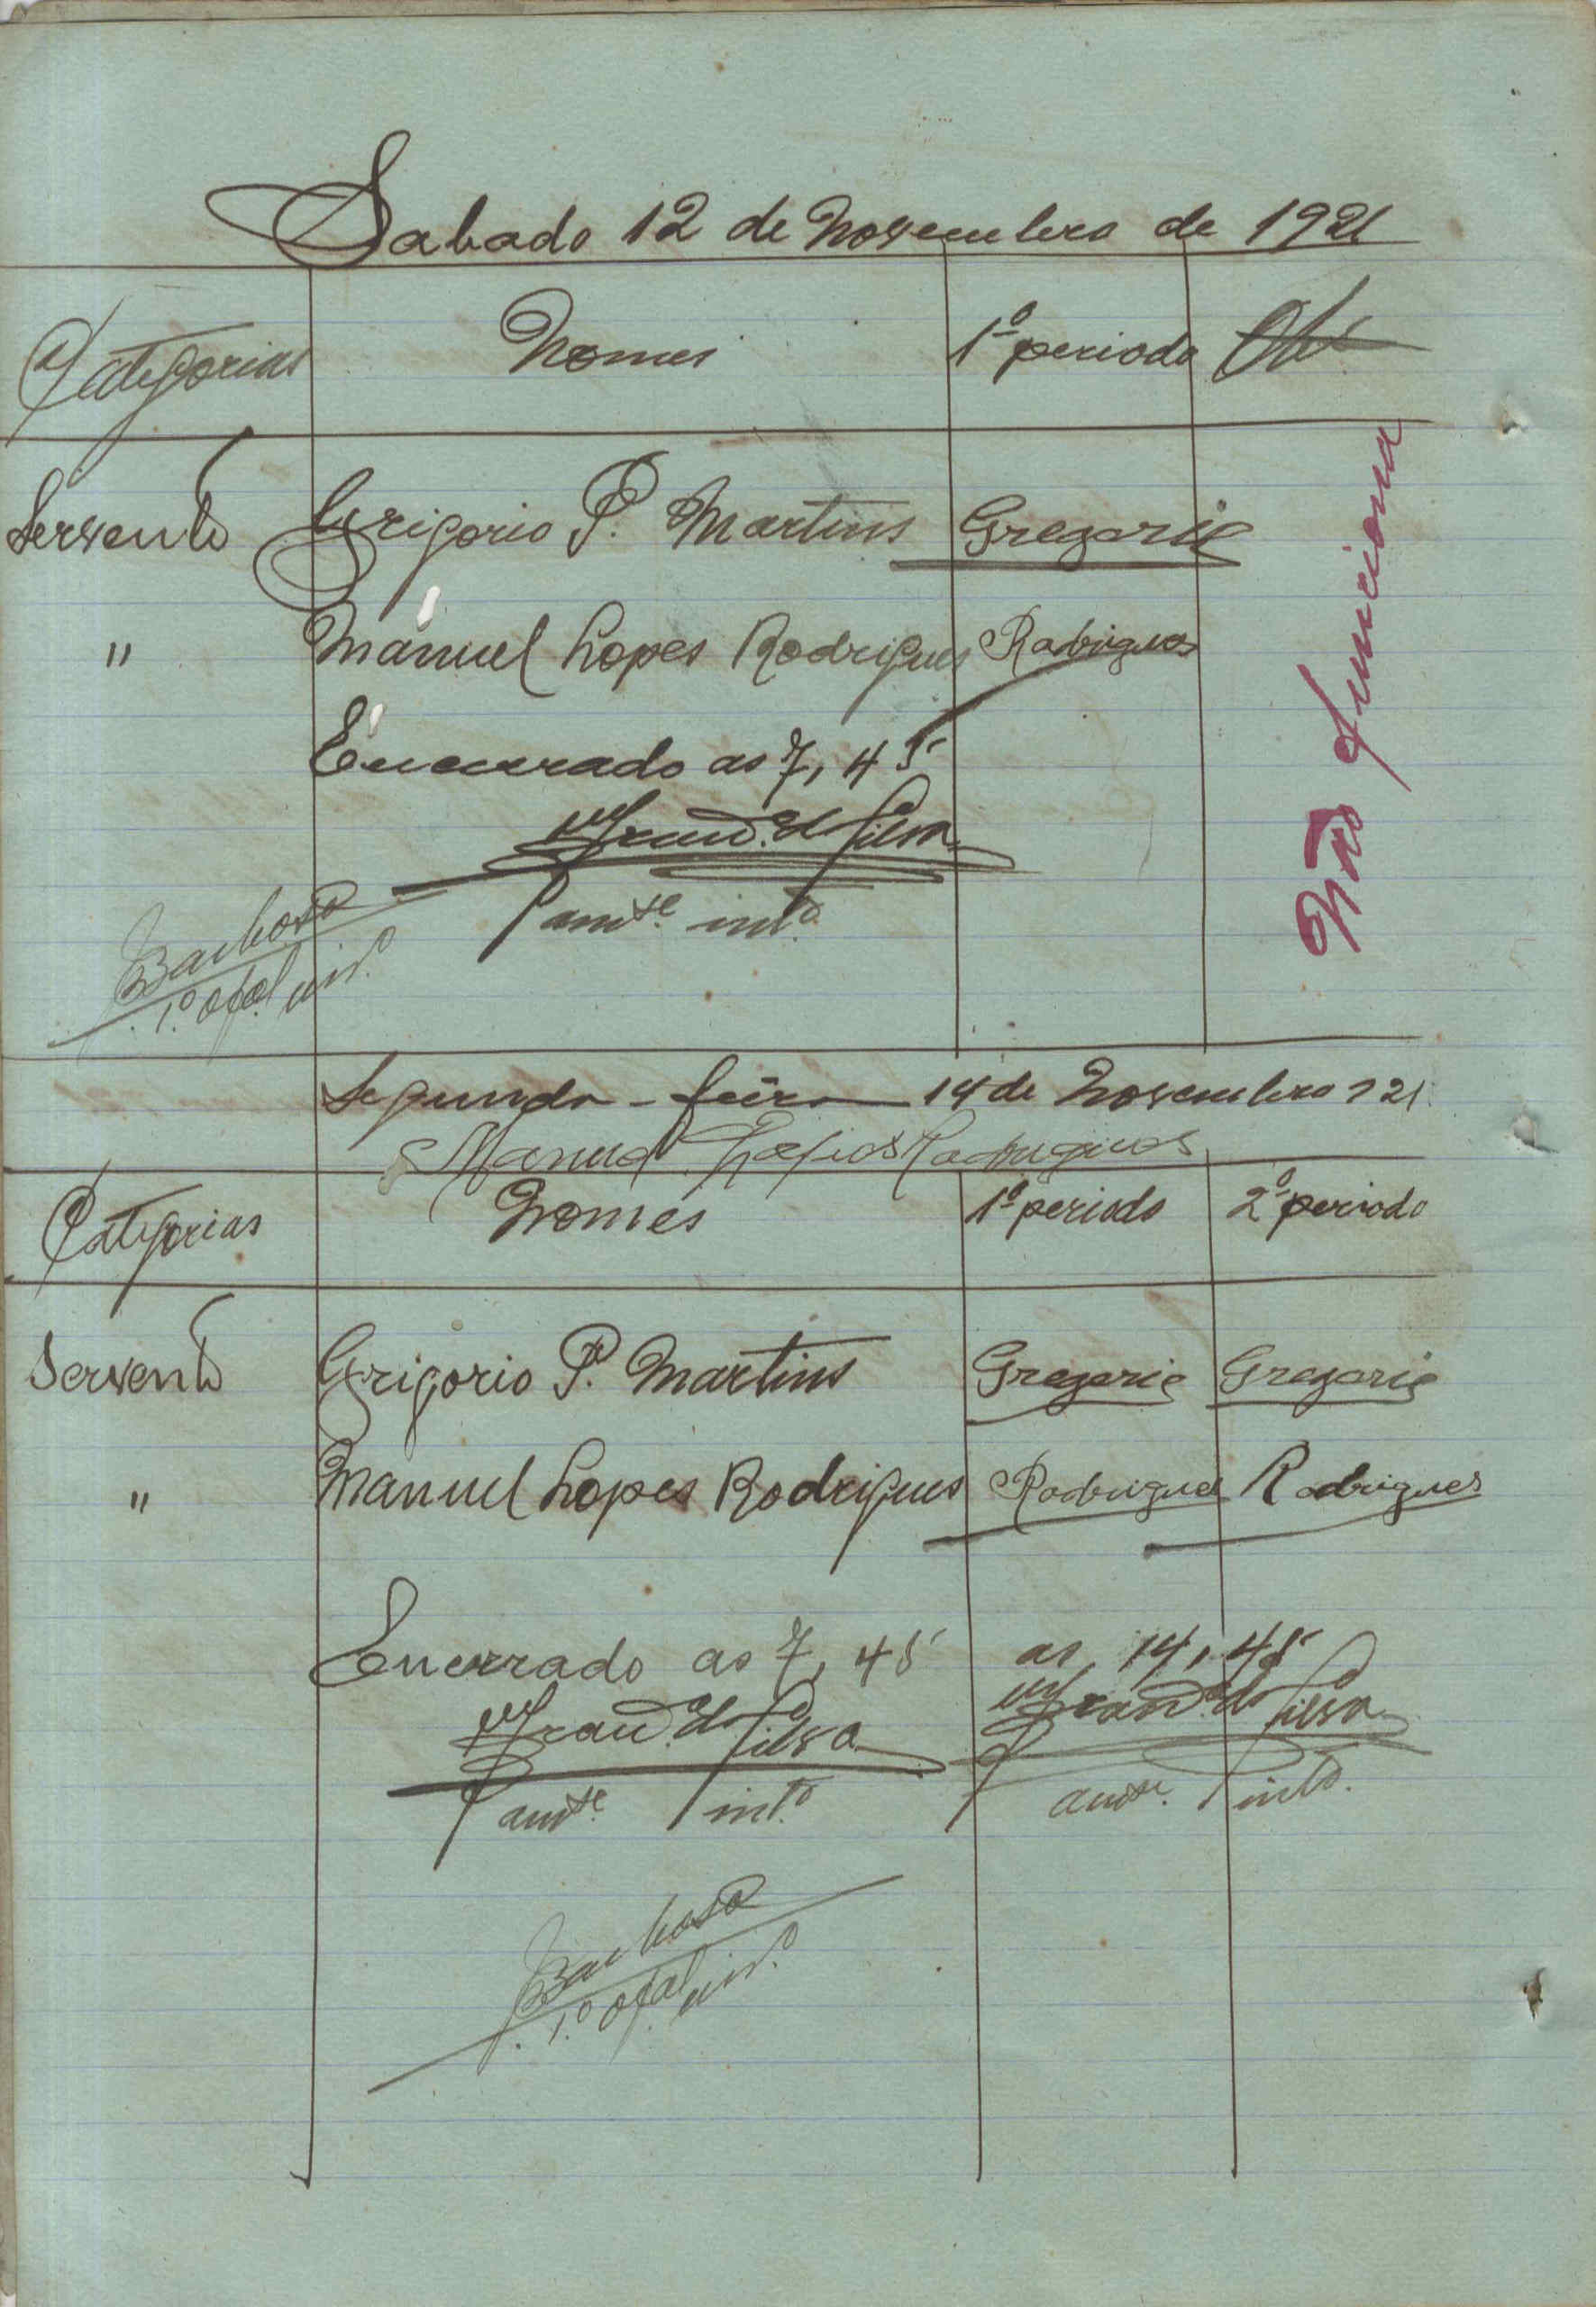 Sabado 12 de Novembro de 1921
Categorias Nomes 1º periodo Obs
Servente Grigorio P. Martins Gregorio
" Manuel Lopes Rodrigues Rodrigues
Não funciona
Encerrado as 7,45
Silva
amte. intº.
Barbosa
1.º ofal. int.º
Segunda-feira 14 de Novembro 921
Manuel Lopes Rodrigues
Categorias Nomes 1º periodo 2º periodo
Servente Grigorio P. Martins Gregorio Gregorio
" Manuel Lopes Rodrigues Rodrigues Rodrigues
Encerrado as 7,45 as 14,45
Silva Silva
amte. intº. amte. intº.
Barbosa
1.º ofal. int.º